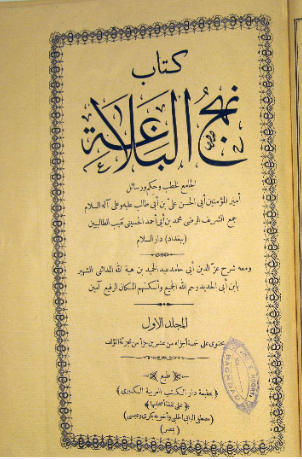 كتاب
نهج البلاغة
الجامع لخطب وحكم ورسائل
أمير المؤمنين أبي الحسن علي بن أبي طالب عليه وعلى آله السلام
جمع الشريف الرضي محمد بن أبي أحمد الحسيني نقيب الطالبيين
(ببغداد) دار السلام
ومعه شرح عز الدين أبي حامد عبد الحميد بن هبة الله المدائني الشهير
بابن أبي الحديد رحم الله الجميع وأسكنهم المكان الرفيع آمين
المجلد الاول
يحتوي على خمسة أجزاء من عشرين جزأ من تجزئة المؤلف
طبع
بمطبعة دار الكتب العربية الكبرى
على نفقة أصحابها
مصطفى البابي الحلبي وأخويه بكري وعيسى
بمصر